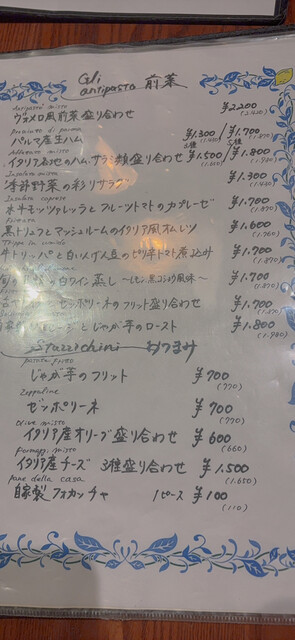 Gli antipasto 前菜
Antipasti misto
ウヲメロ風前菜盛り合わせ ¥2.200
(2.420)
Prosciutto di parma
パルマ産生ハム ¥1.300 / ¥1.700
(1.430) (1.870)
Affettato misto 3種 5種
イタリア各地のハム、サラミ ¥1.500 / ¥1.800
(1.650) (1.980)
Insalata misto
季節野菜の彩りサラダ ¥1.300
(1.430)
Insalata caprese
水牛モッツァレッラとフルーツトマトのカプレーゼ ¥1.700
(1.870)
黒トリュフとマッシュルームのイタリア風オムレツ ¥1.600
(1.760)
Trippa in umido
牛トリッパと白いんげん豆のピリ辛トマト煮込み ¥1.700
(1.870)
白ワイン蒸し 〜レモン、黒コショウ風味〜 ¥1.700
(1.870)
ゼッポリーネのフリット盛り合わせ ¥1.700
とじゃが芋のロースト ¥1.800
(1.980)
Stuzzichini おつまみ
patata fritto
じゃが芋のフリット ¥700
(770)
Zeppoline
ゼッポリーネ ¥700
(770)
Olive misto
イタリア産オリーブ盛り合わせ ¥600
(660)
Formaggi misto
イタリア産チーズ 3種盛り合わせ ¥1.500
(1.650)
Pane della casa
自家製フォカッチャ 1ピース ¥100
(110)